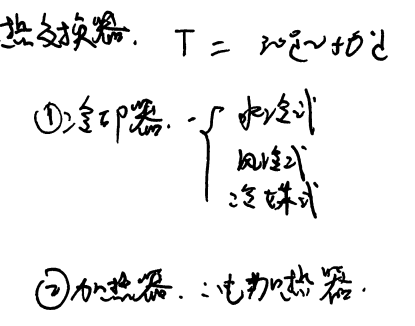 热交换器. T = 30℃~50℃
①冷却器. - { 水冷式
风冷式
冷媒式
②加热器. : 电加热器.